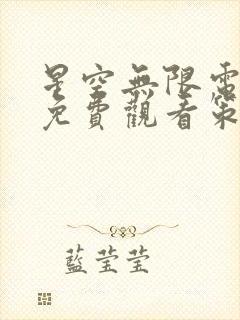 星空無限電
免費觀看策
藍莹莹